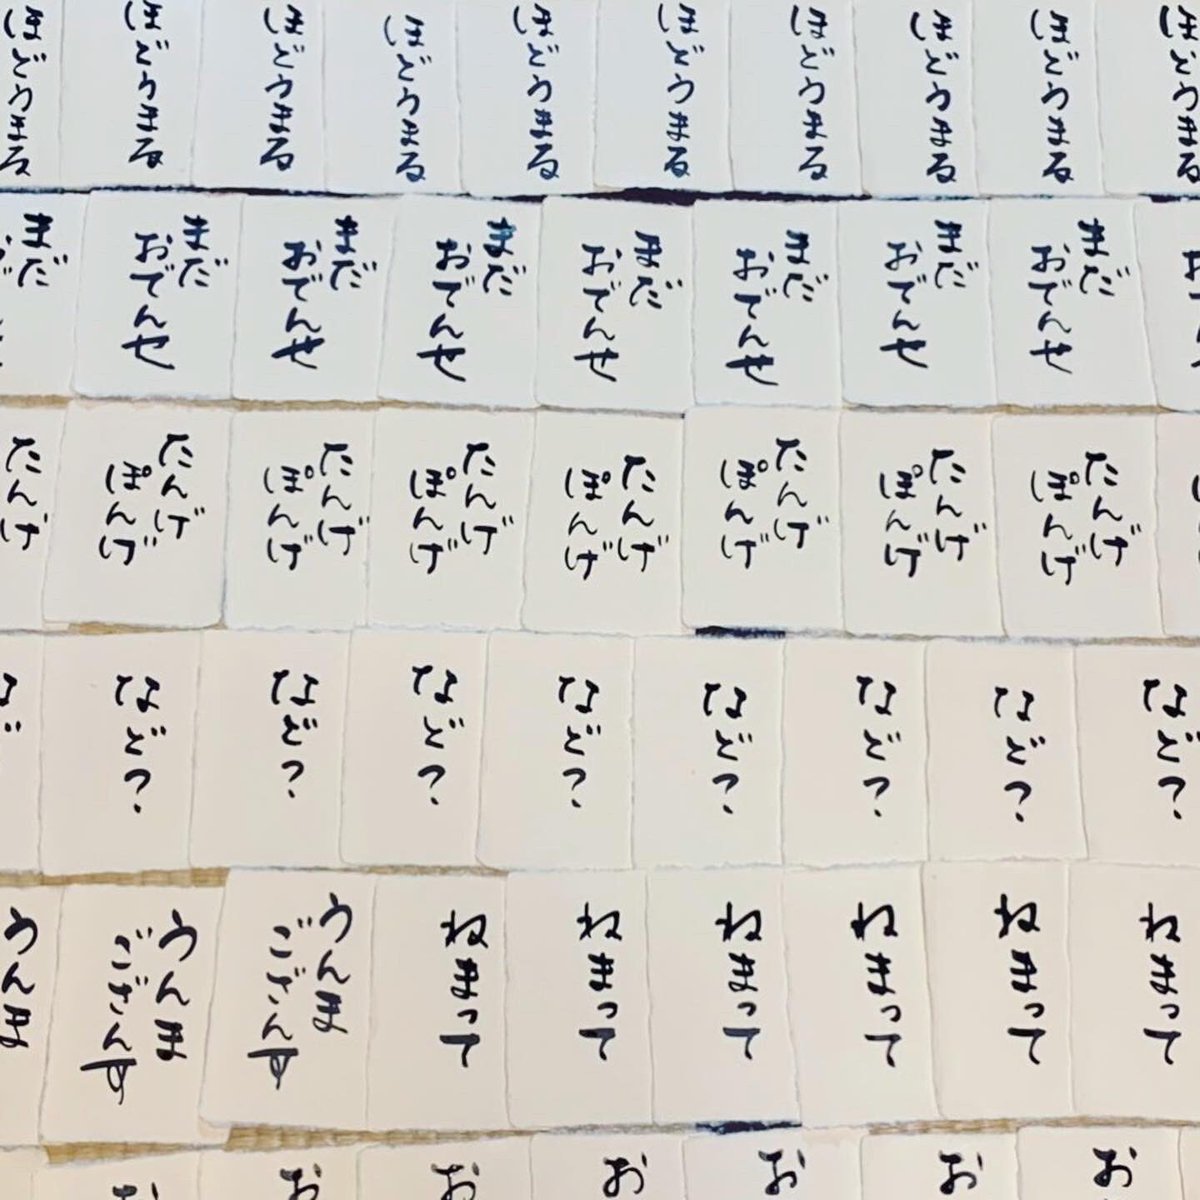 ほどうまる
ほどうまる
ほどうまる
ほどうまる
ほどうまる
ほどうまる
ほどうまる
ほどうまる
ほどうまる
ほどうまる
まだ
まだ
おでんせ
まだ
おでんせ
まだ
おでんせ
まだ
おでんせ
まだ
おでんせ
まだ
おでんせ
まだ
おでんせ
たんげ
たんげ
ぽんげ
たんげ
ぽんげ
たんげ
ぽんげ
たんげ
ぽんげ
たんげ
ぽんげ
たんげ
ぽんげ
たんげ
ぽんげ
など?
など?
など?
など?
など?
など?
など?
など?
うんま
うんま
ござんす
うんま
ござんす
ねまって
ねまって
ねまって
ねまって
ねまって
ねまって
お
お
お
お
お
お
お